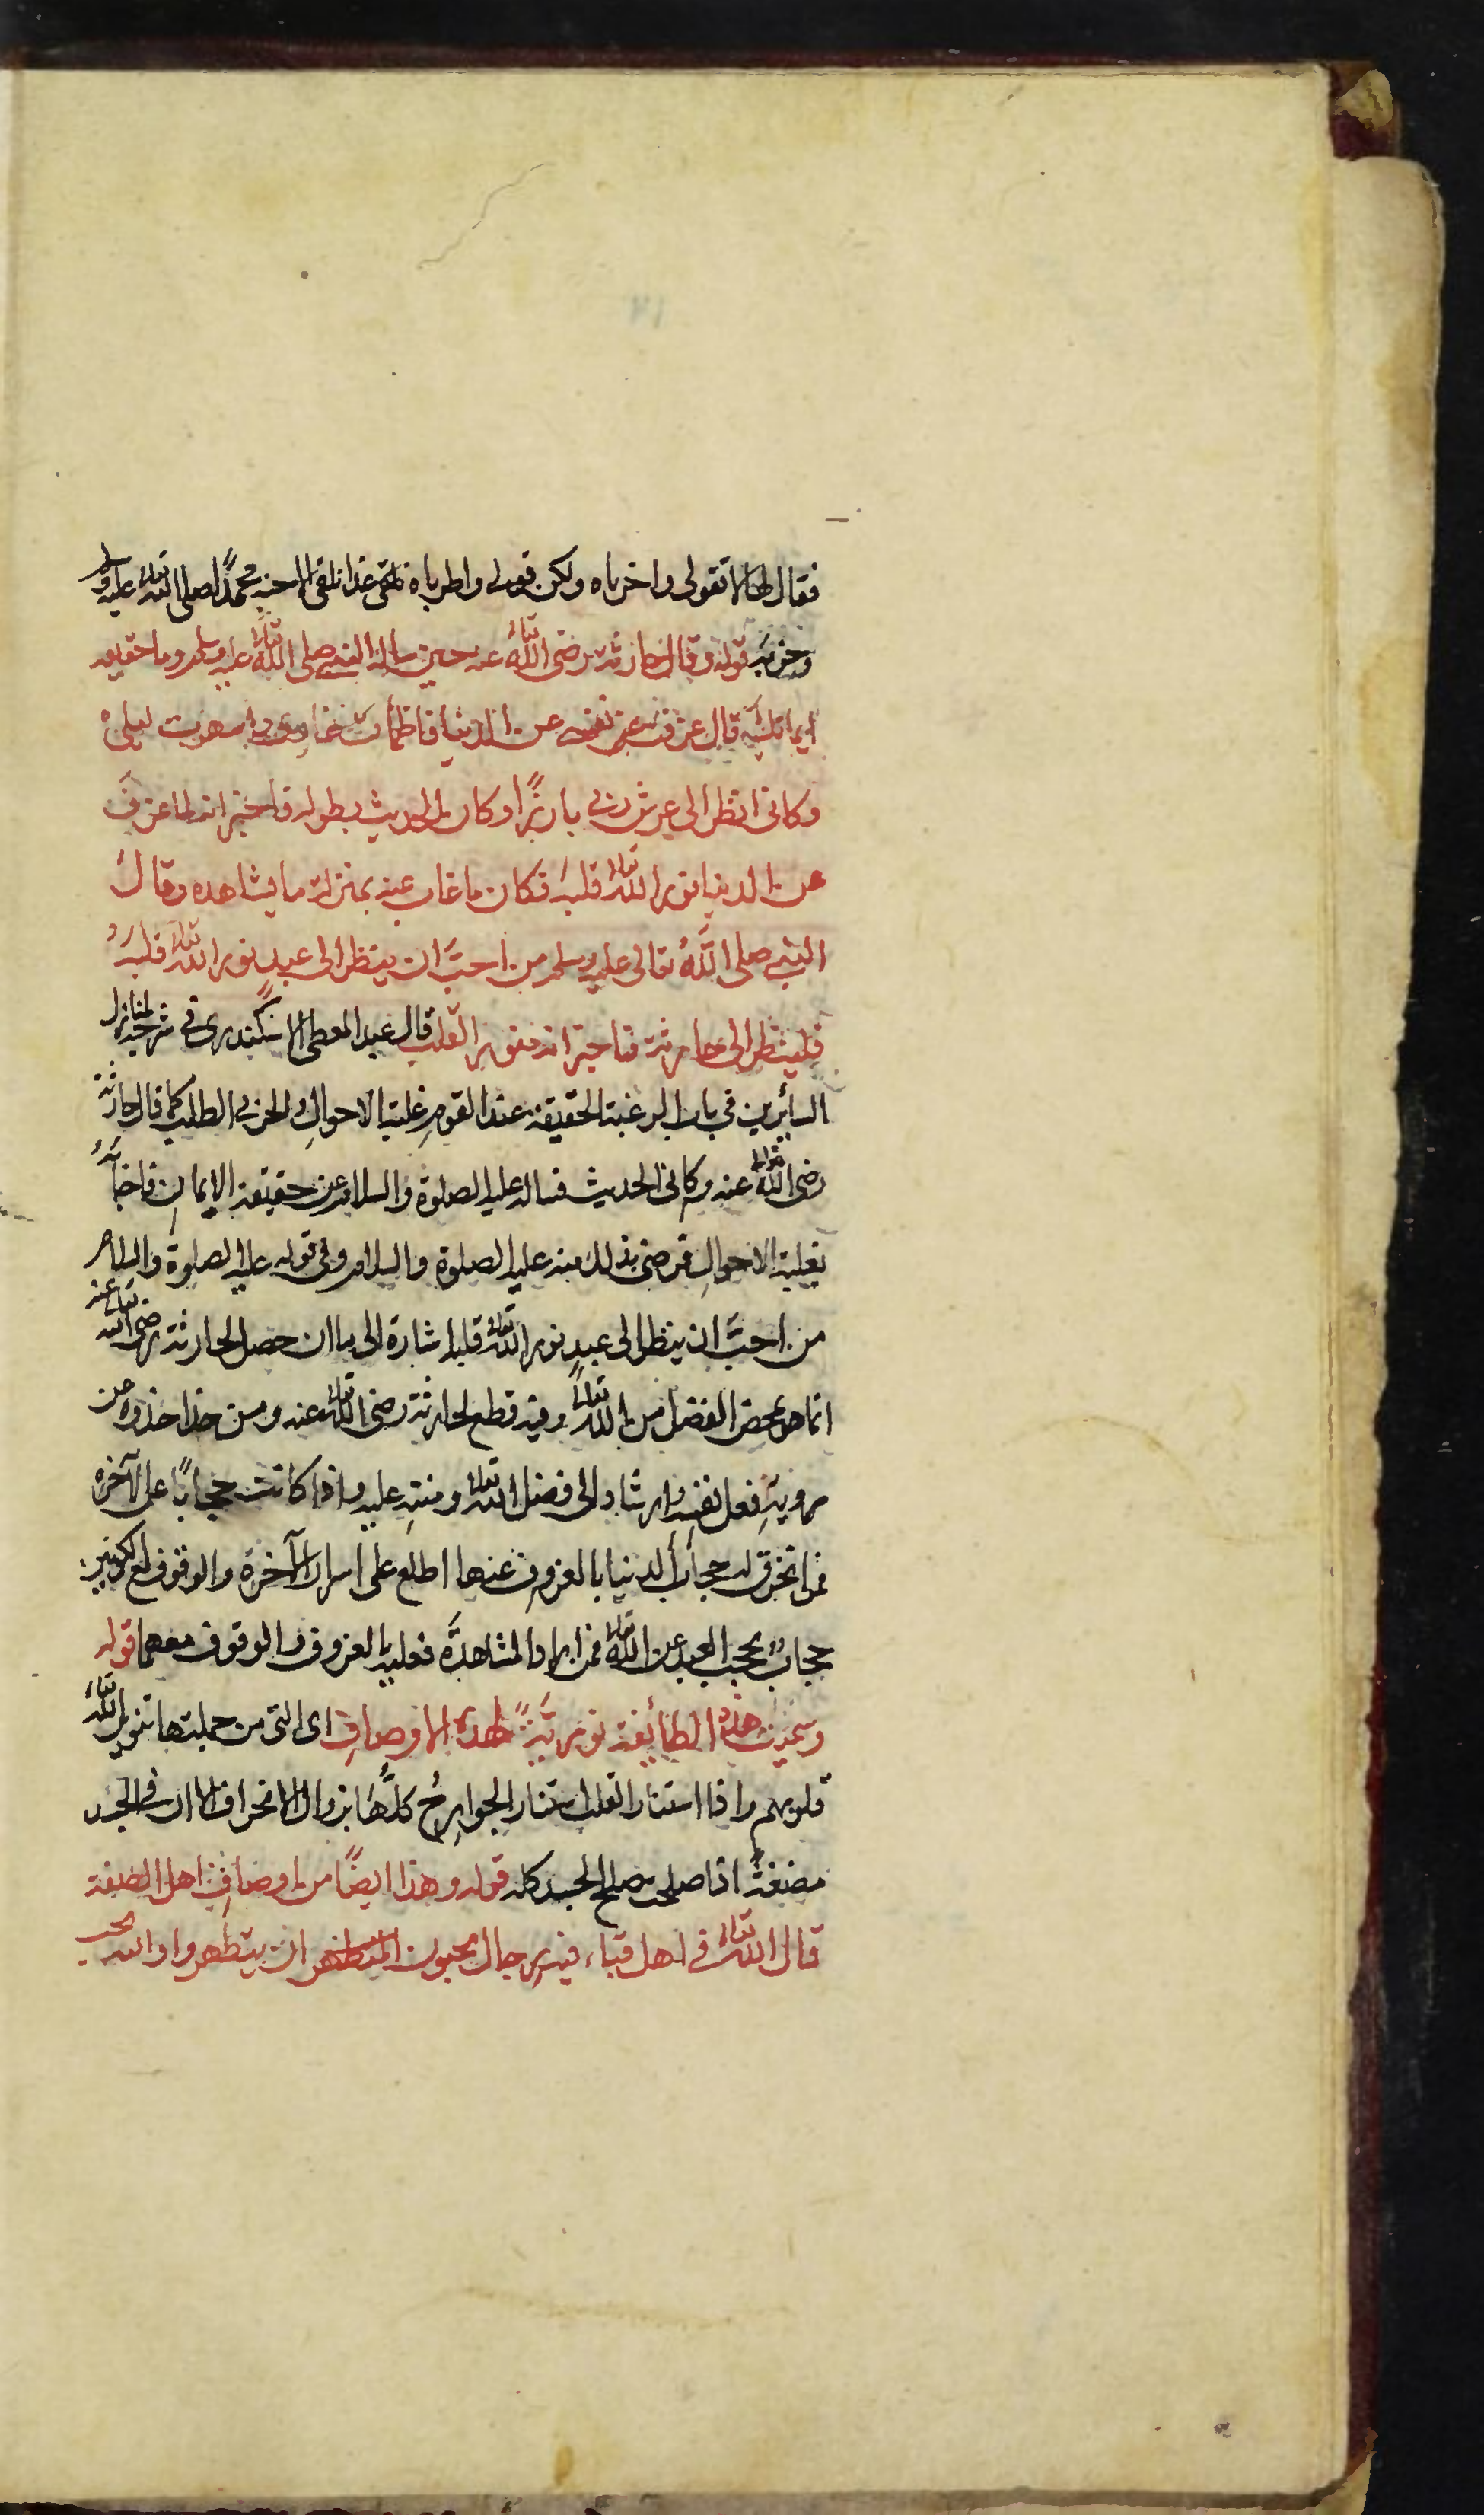 فقال لها لا تقولى واحزناه ولكن قولى واطرباه نلقى غدا نلقى الاحبه محمدًا صلى الله تعالى عليه وسلم
وحزبه قوله وقال حارثة رضى الله تعالى عنه حين ساله النبى صلى الله تعالى عليه وسلم وما حقيقة
ايمانك قال عزفت عن نفسى عن الدنيا فاظمأت نهارى واسهرت ليلى
وكانى انظر الى عرش ربى بارزًا وكان الحديث بطوله فاخبر انه لما عزف
عن الدنيا نور الله تعالى قلبه فكان ما غاب عنه بمنزلة ما يشاهده وقال
النبى صلى اللّٰه تعالى عليه وسلم من احبَّ ان ينظر الى عبد نور الله تعالى قلبه
فلينظر الى حارثة فاخبر انه منور القلب قال عبد المعطى الاسكندرى فى شرحه لمنازل
السائرين فى باب الرغبة الحقيقة عند القوم غلبة الاحوالِ والحزن الطلب كما قال حارثة
رضى الله تعالى عنه وكانى الحديث فساله عليه الصلوة والسلام عن حقيقة الايمان فاجابهُ
بغلبة الاحوالِ فرضى بذلك منه عليه الصلوة والسلام وفى قوله عليه الصلوة والسلام
من احبَّ ان ينظر الى عبدٍ نور الله تعالى قلبه اشارة الى ما ان حصل لحارثة رضى الله تعالى عنه
انما هو بمحض الفضل من الله تعالى وفيه قطع لحارثة رضى الله تعالى عنه ومن حذا حذوه عن
روية فعل نفسه وارشاد الى فضل الله تعالى ومنته عليه واذا كانت حجابًا على الآخرة
فمن انخرق له حجاب الدنيا بالعزوف عنها اطلع على اسرار الآخرة والوقوف مع الكونين
حجابٌ يحجب العبد عن الله تعالى فمن اراد المشاهدة فعليه بالعزوف والوقوف معهما قوله
وسميت هذه الطائفة نوريةً لهذه الاوصافِ اى التى من جملتها تنوير الله تعالى
قلوبهم واذا استنار القلب استنار الجوارحُ كلُّها بزوال الانحراف الا ان فى الجسد
مضغةً اذا صلحت صلح الجسد كله قوله وهذا ايضًا من اوصافِ اهل الصفة
قال الله تعالى فى اهل قباء فيه رجال يحبون ان يتطهروا والله يحب